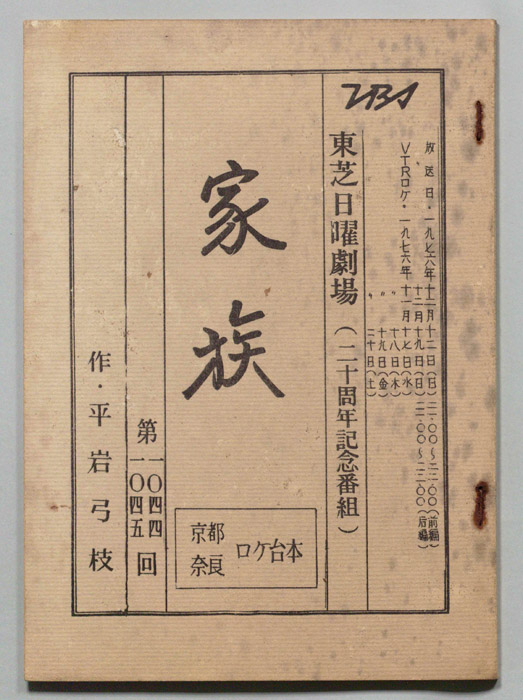 放送日・一九七六年十二月十二日(日)二一・〇〇～二二・〇〇(前編)
十二月十九日(日)二一・〇〇～二二・〇〇(后編)
VTRロケ・一九七六年十一月十七日(水)
〃 十八日(木)
〃 十九日(金)
二十日(土)
TBS
東芝日曜劇場(二十周年記念番組)
家族
京都
奈良
ロケ台本
第一〇四四
一〇四五回
作・平岩弓枝